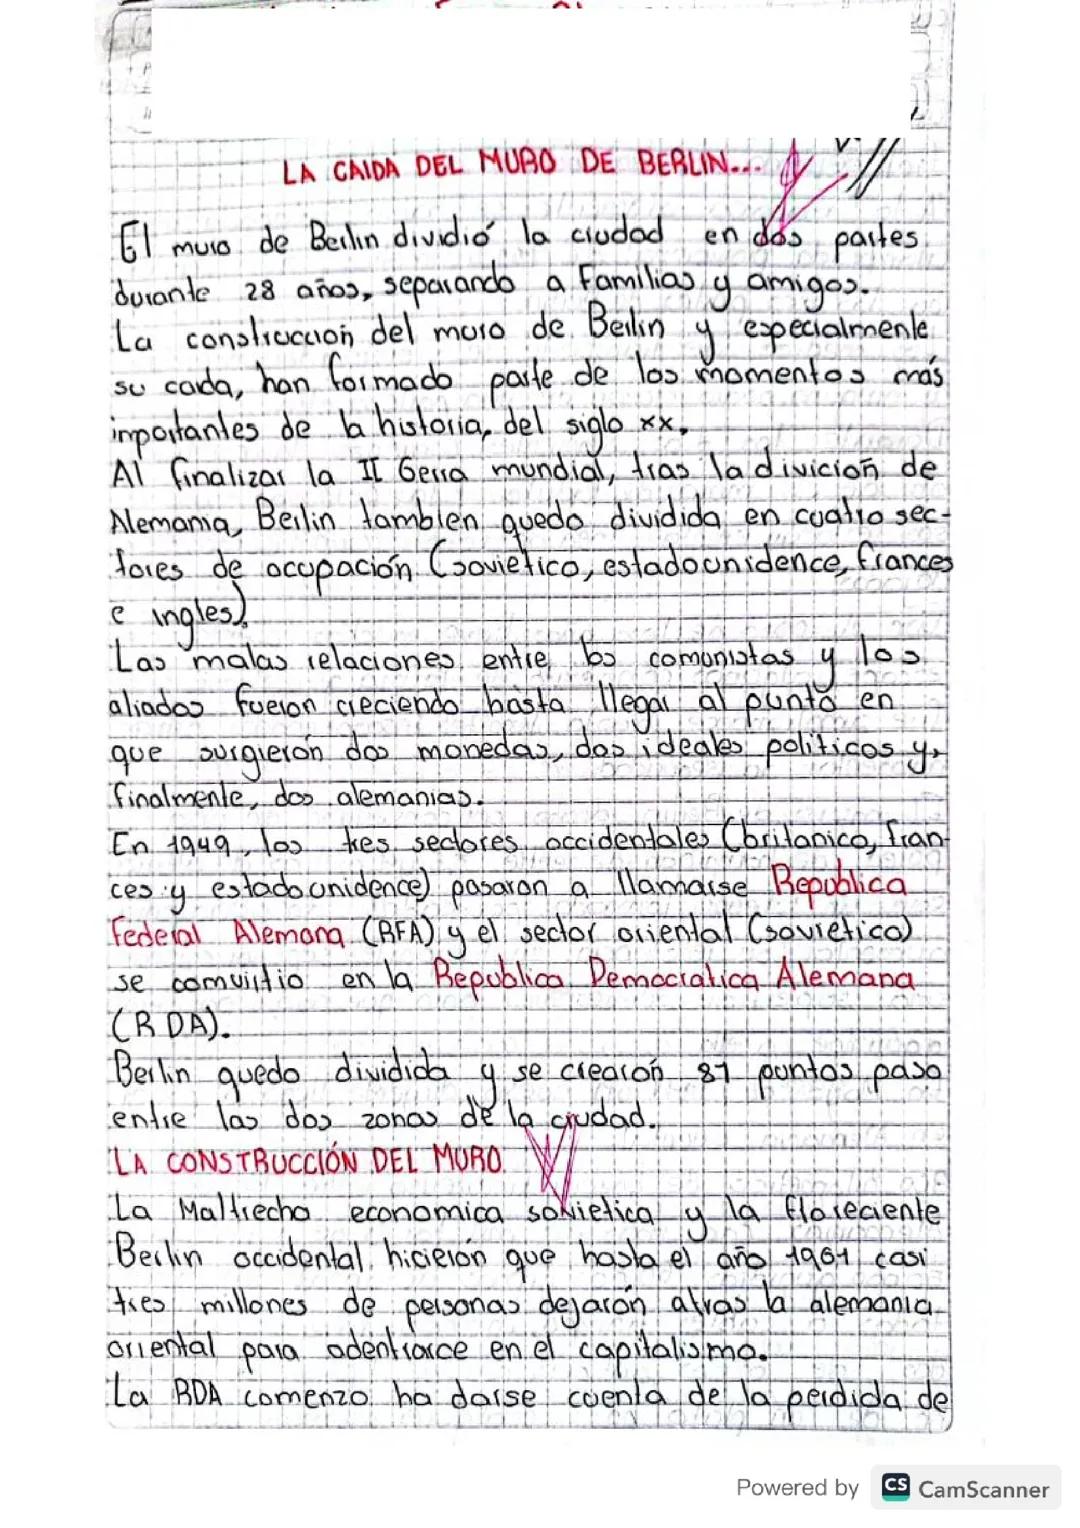 LA CAIDA DEL MURO DE BERLIN...
El muro de Berlin dividió la ciudad en dos partes
durante 28 años, separando a Familias y amigos.
La construccion del muro de Berlin y especialmente
su caida, han formado parte de los momentos más
inportantes de la historia, del siglo xx,
Al finalizar la II Gerra mundial, tras la divicion de
Alemania, Berlin tambien quedo dividida en cuatro sec-
tores de ocupación (sovietico, estadounidence, frances
e ingles).
Las malas relaciones entre los comunistas y los
aliados fueron creciendo hasta llegar al punto en
que surgieron dos monedas, dos ideales politicos y,
finalmente, dos alemanias.
En 1949, los tres sectores occidentales (britanico, fran-
ces y estadounidence) pasaron a llamarse Republica
Federal Alemana (RFA) y el sector oriental (sovietico)
se comvirtio en la Republica Democratica Alemana
(RDA).
Berlin quedo dividida y se crearon 81 puntos paso
entre las dos zonas de la ciudad.
LA CONSTRUCCIÓN DEL MURO.
La Maltrecha economica sovietica y la floreciente
Berlin occidental hicieron que hasta el año 1961 casi
tres millones de personas dejaron atras la alemania
oriental para adentrarce en el capitalismo.
La RDA comenzo ha darse cuenta de la perdida de
Powered by CS CamScanner